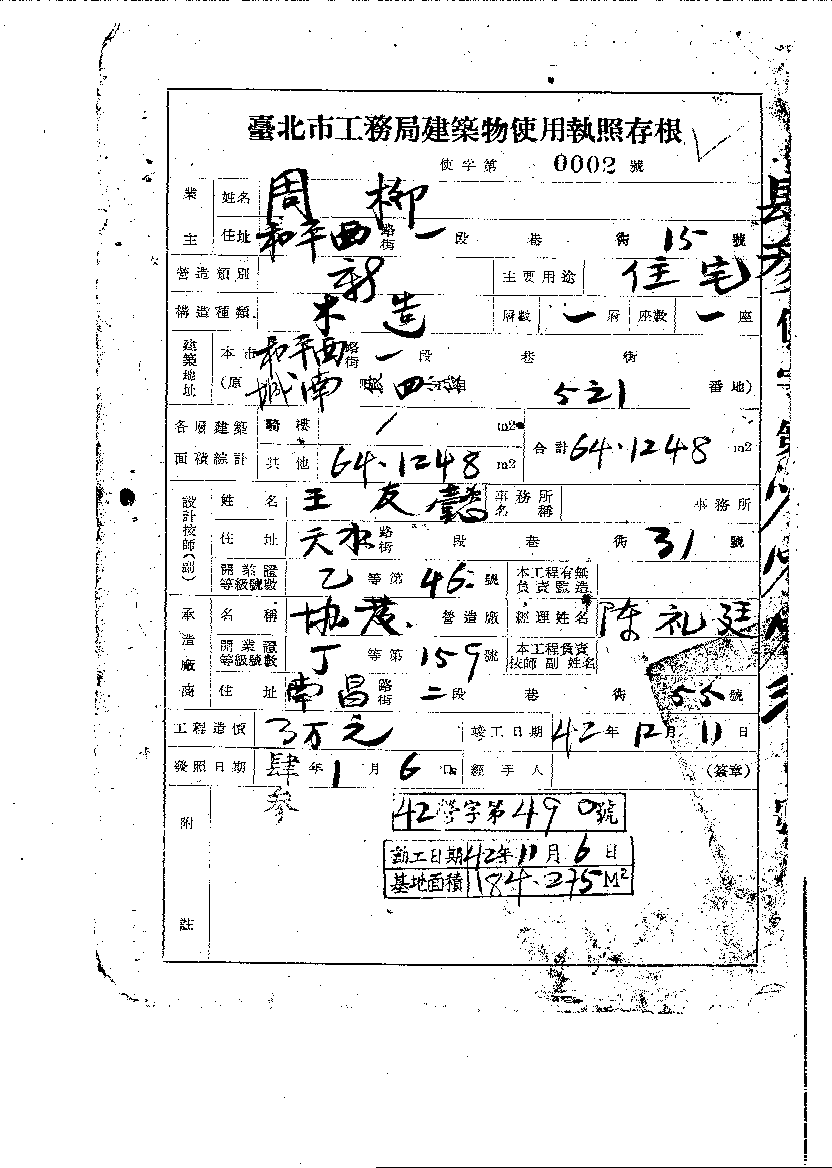 臺北市工務局建築物使用執照存根
使字第 0002 號
業主 姓名 周 柳
住址 和平西 路街 一 段 巷 街 15 號
營造類別 新 主要用途 住宅
構造種類 木造 層數 一 層 座數 一 座
建築地址 本市 和平西 路街 一 段 巷 街
(原 城南 四 521 番地)
各層建築面積綜計 騎樓 / m2 合計 64.1248 m2
其他 64.1248 m2
設計技師(副) 姓名 王友 事務所名稱 事務所
住址 天水 路街 段 巷 街 31 號
開業證等級號數 乙 等第 46 號 本工程有無負責監造
承造廠商 名稱 協 營造廠 經理姓名 陈礼廷
開業證等級號數 丁 等第 159 號 本工程負責技師副姓名
住址 南昌 路街 二 段 巷 街 55 號
工程造價 3万元 竣工日期 42 年 12 月 11 日
發照日期 肆參 年 1 月 6 日 經手人 (簽章)
附註
42營字第490號
動工日期42年11月6日
基地面積184.275M²